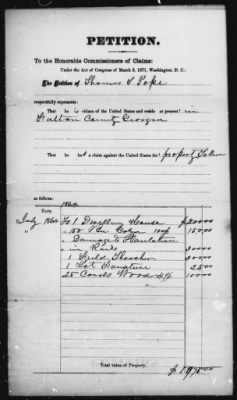 PETITION.
To the Honorable Commissioners of Claims:
Under the Act of Congress of March 3, 1871, Washington, D. C.
The Petition of Thomas S Pope
respectfully represents:
That he is citizen of the United States and reside at present in
Fulton County Georgia
That he had a claim against the United States for property Taken
as follows:
1864
July 1864 To 1 Dwelling House
" 150 Bu Corn 150.00
" Damage to Plantation
" in Rails
1
1 Lot Furniture 25.00
25 Cords Wood 100.00
Total value of Property.